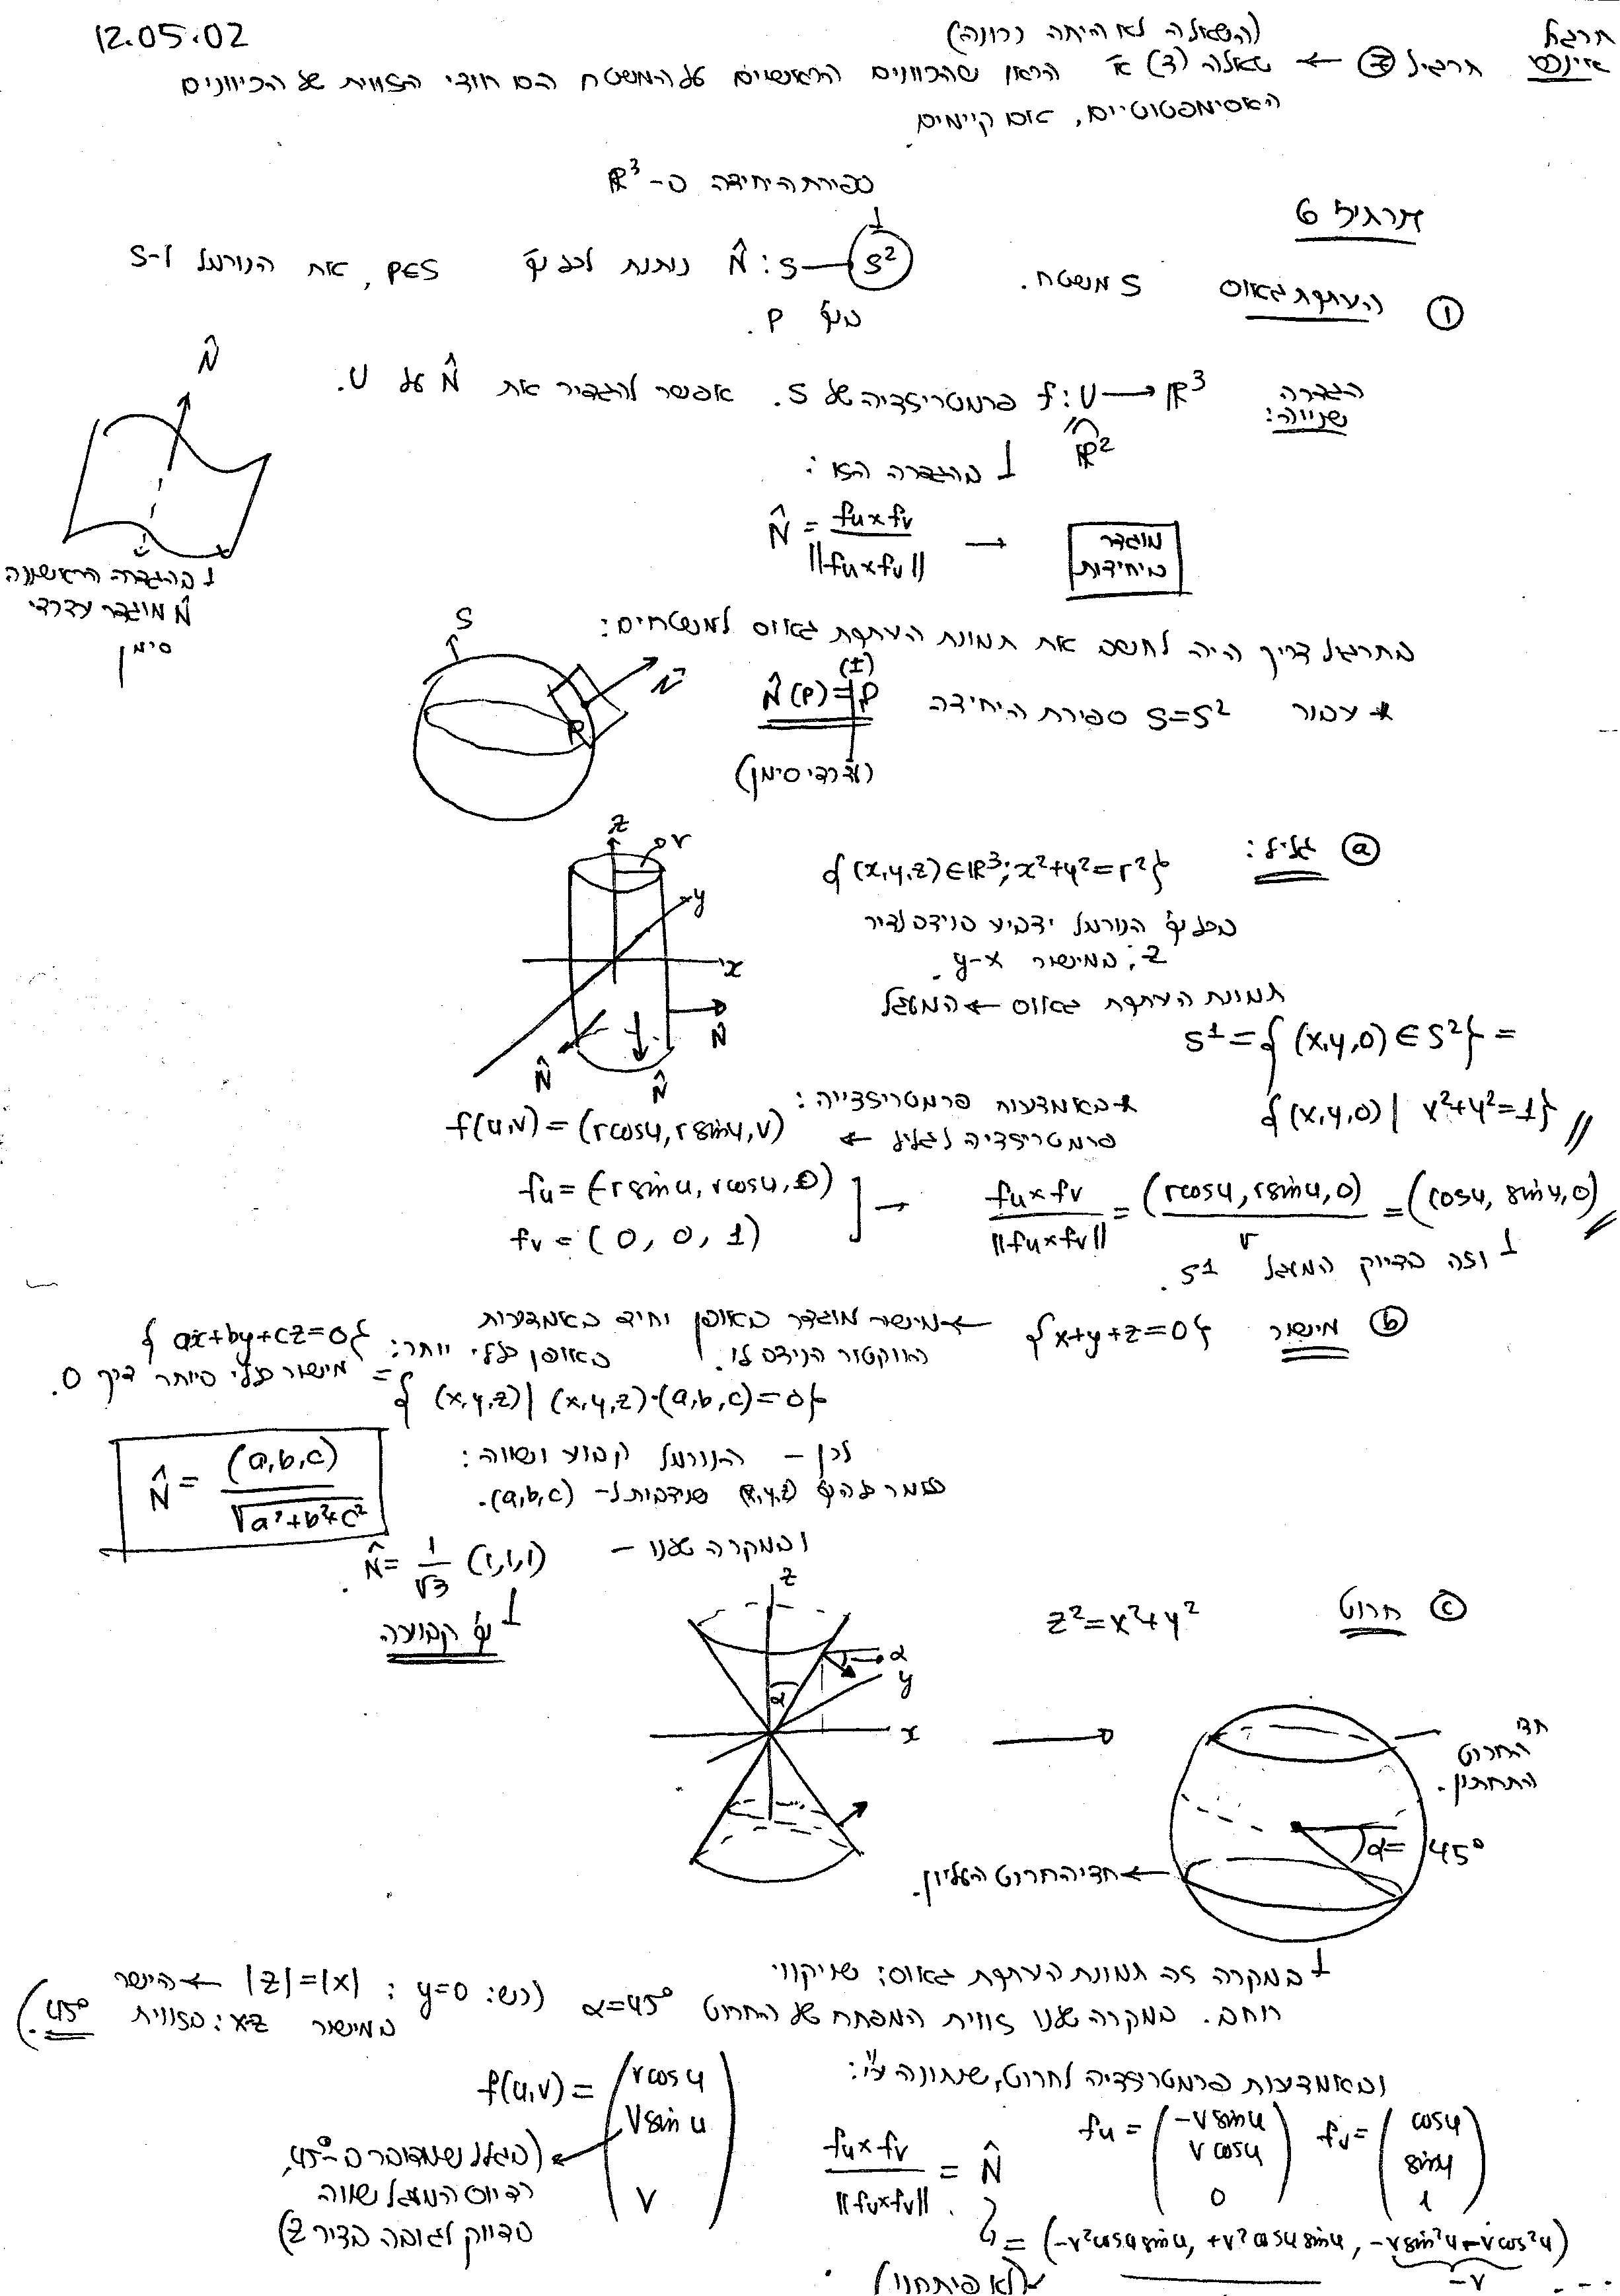 12.05.02
תרגול
אינפי תרגיל 7 ← שאלה (3) א הראו שהכוונים הראשיים על המשטח הם חוצי הזווית של הכיוונים
(השאלה לא היתה נכונה)
האסימפטוטיים, אם קיימים.
תרגיל 6
ספירת היחידה ב-ℝ³
① העתקת גאוס S משטח. N̂ : S → S² נותנת לכל נק' p∈S, את הנורמל ל-S
בנק' p.
הגדרה שנייה: f : U → ℝ³ פרמטריזציה של S. אפשר להגדיר את N̂ על U.
ℝ²
מהגדרה הזו:
N̂ = fu×fv / ||fu×fv|| → מוגדר ביחידות
N̂
בהגדרה הראשונה
N̂ מוגדר עד כדי
סימן
בתרגיל צריך היה לחשב את תמונת העתקת גאוס למשטחים:
* עבור S=S² ספירת היחידה N̂(p)=(±)p
(עד כדי סימן)
S
N̂
P
ⓐ גליל: {(x,y,z)∈ℝ³; x²+y²=r²}
בכל נק' הנורמל יצביע בניצב לציר
z; במישור x-y.
תמונת העתקת גאוס ← המעגל
S¹={(x,y,0)∈S²} =
{(x,y,0)| x²+y²=1}
z
r
y
x
N̂
N̂
N̂
* באמצעות פרמטריזצייה:
פרמטריזציה לגליל ← f(u,v)=(rcosu, rsinu, v)
fu=(-rsinu, rcosu, 0)
fv=(0, 0, 1)
→ fu×fv / ||fu×fv|| = (rcosu, rsinu, 0) / r = (cosu, sinu, 0)
וזה בדיוק המעגל S¹.
ⓑ מישור {x+y+z=0} ← מישור מוגדר באופן יחיד באמצעות
הווקטור הניצב לו. באופן כללי יותר: {ax+by+cz=0}
= מישור כללי ביותר דרך 0.
{(x,y,z)| (x,y,z)·(a,b,c)=0}
לכן – הנורמל קבוע ושווה:
כלומר כל הנק' (x,y,z) שניצבות ל-(a,b,c).
N̂ = (a,b,c) / √a²+b²+c²
ובמקרה שלנו – N̂ = 1/√3 (1,1,1).
נק' קבועה
ⓒ חרוט z²=x²+y²
z
α
α
y
x
חצי
החרוט
התחתון.
α=45°
חצי החרוט העליון.
במקרה זה תמונת העתקת גאוס: שני קווי
רוחב. במקרה שלנו זווית המפתח של החרוט α=45° (כש: y=0 ; |z|=|x| ← הישר
במישור xz: בזווית 45°.)
ובאמצעות פרמטריזציה לחרוט, שנתונה ע"י:
f(u,v) = (vcosu
vsinu
v)
(בגלל שמדובר ב-45°,
רדיוס המעגל שווה
בדיוק לגובה בציר z)
fu = (-vsinu
vcosu
0) fv = (cosu
sinu
1)
fu×fv / ||fu×fv|| = N̂
= (-v²cosusinu, +v²cosusinu, -vsin²u-vcos²u)
-v
(לא פיתחנו)